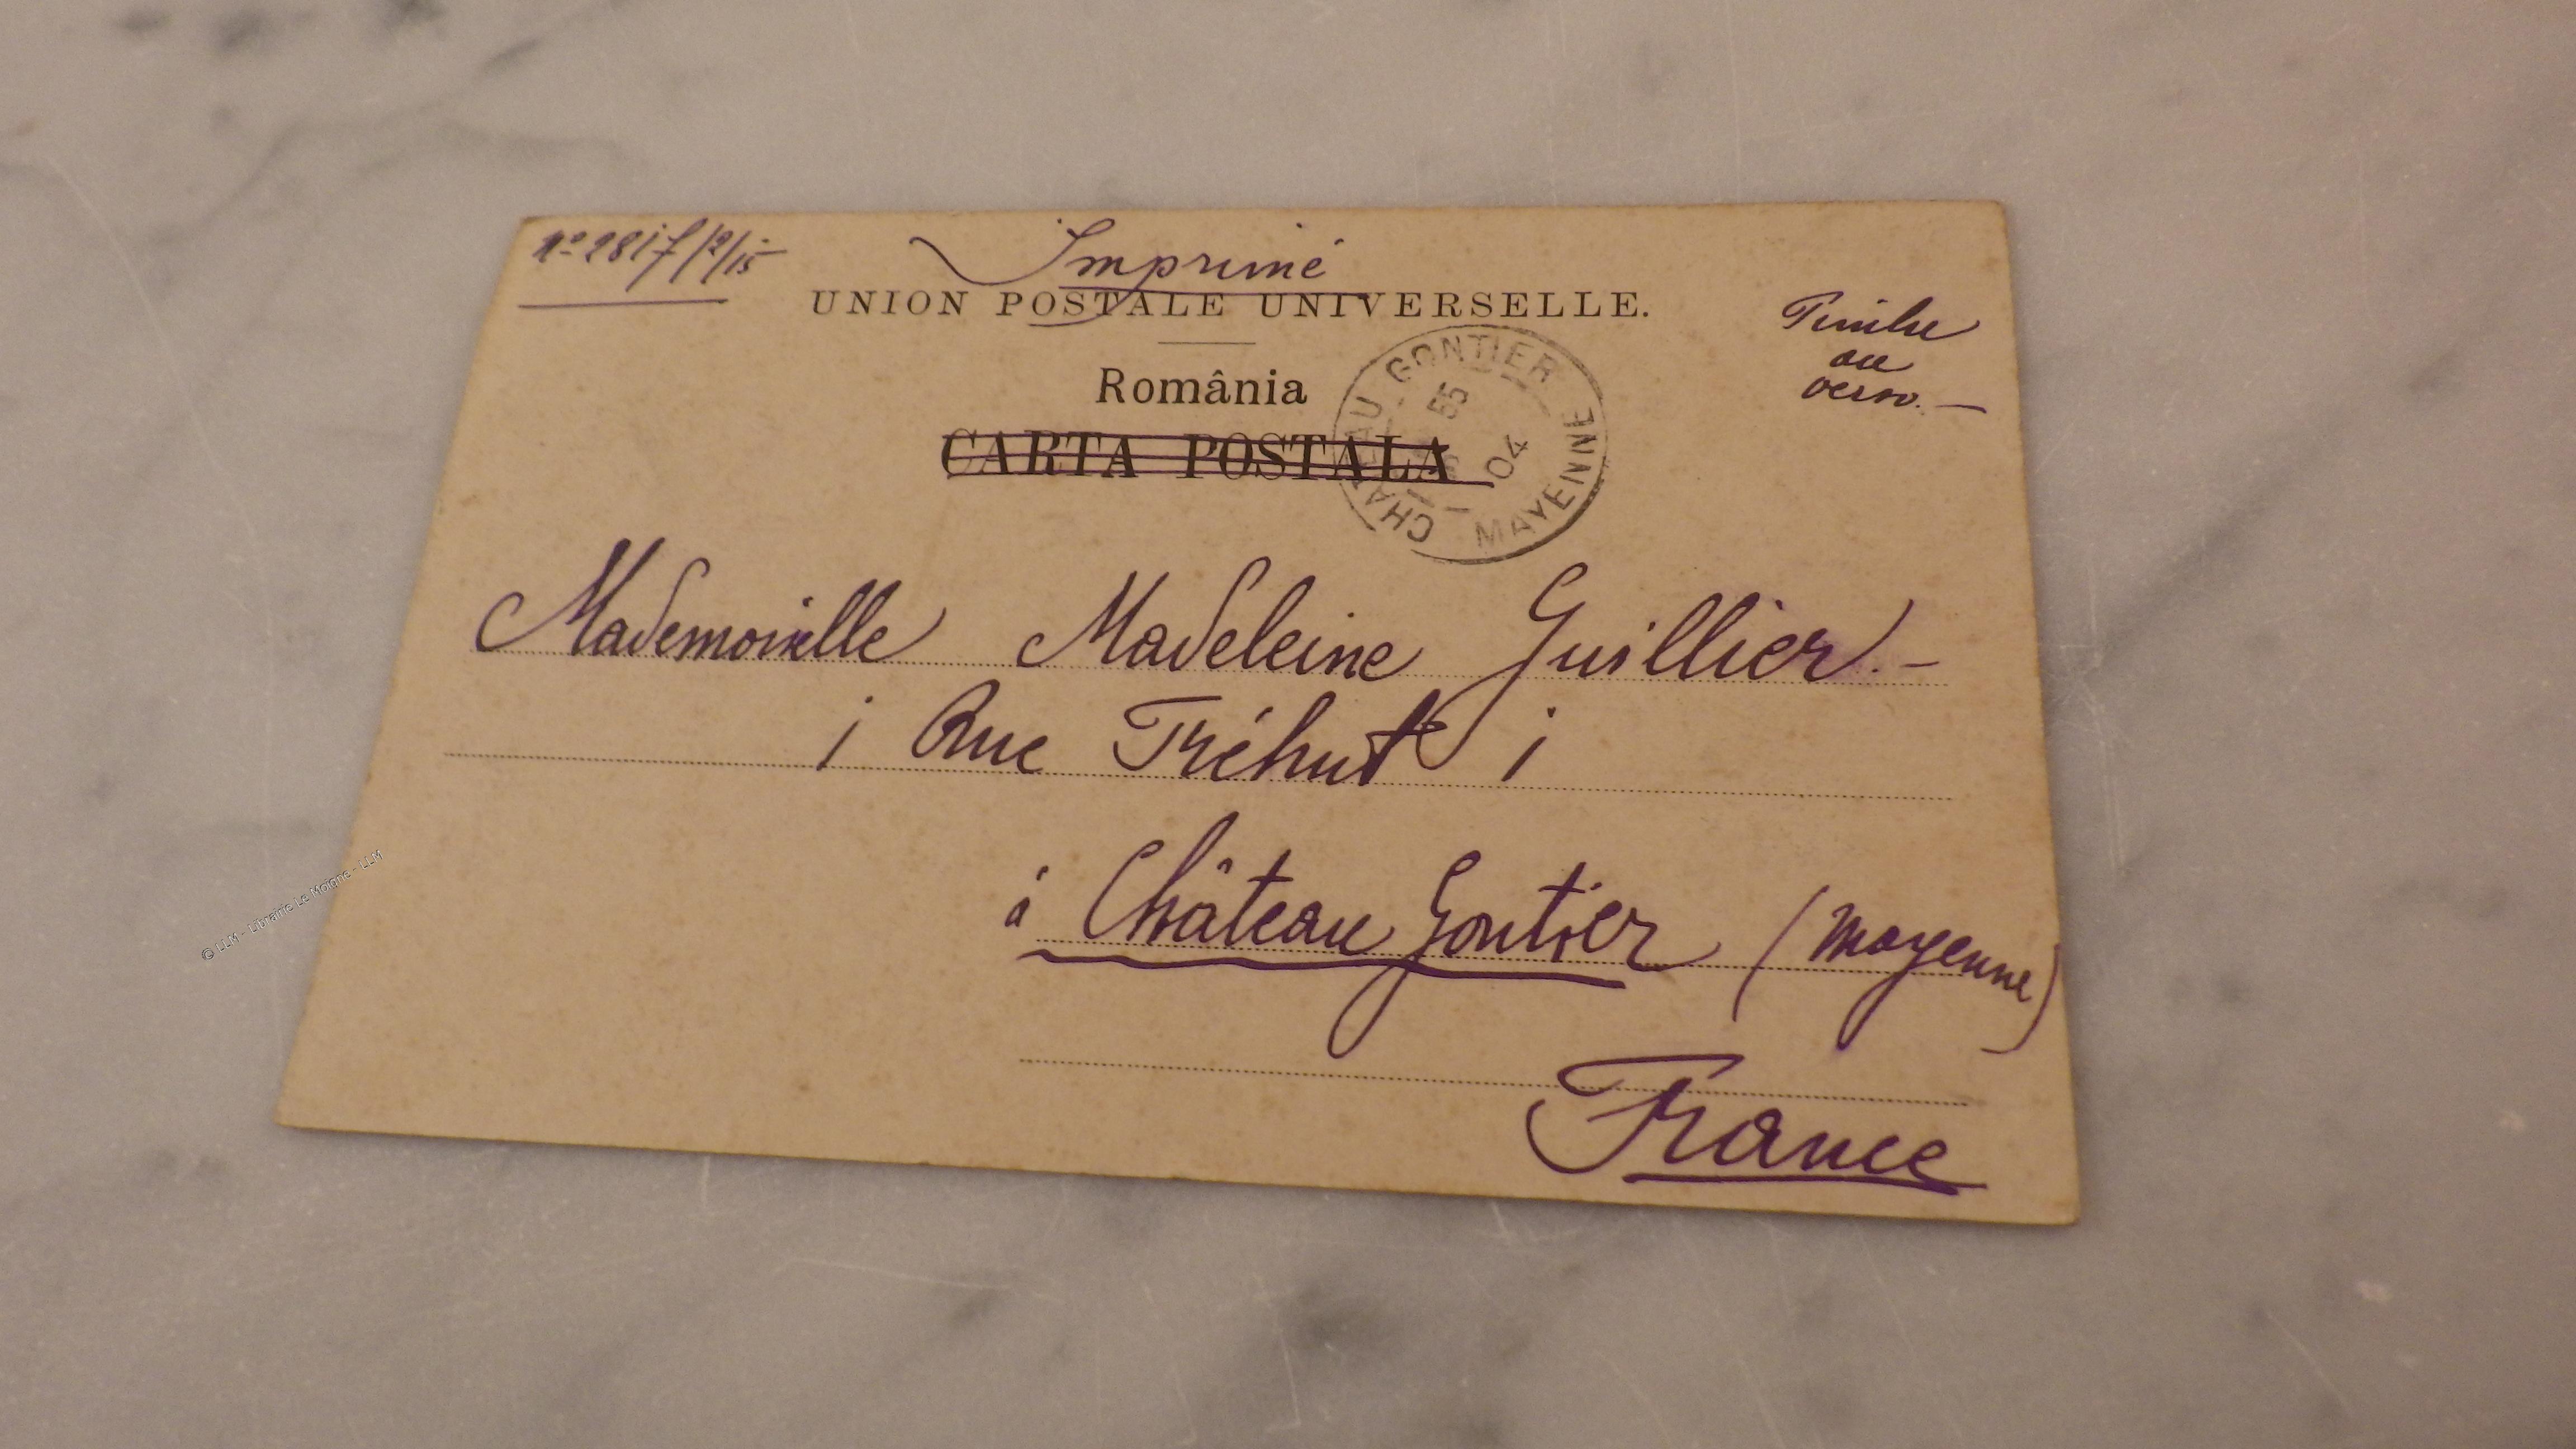 Nº 2817/12/15
Imprimé
UNION POSTALE UNIVERSELLE.
Timbre
au
verso.—
România
CARTA POSTALA
CHATEAU - GONTIER
55
04
MAYENNE
Mademoiselle Madeleine Guillier.—
1 Rue Tréhut 1
à Château Gontier (Mayenne)
France
© LLM - Librairie Le Moigne - LLM